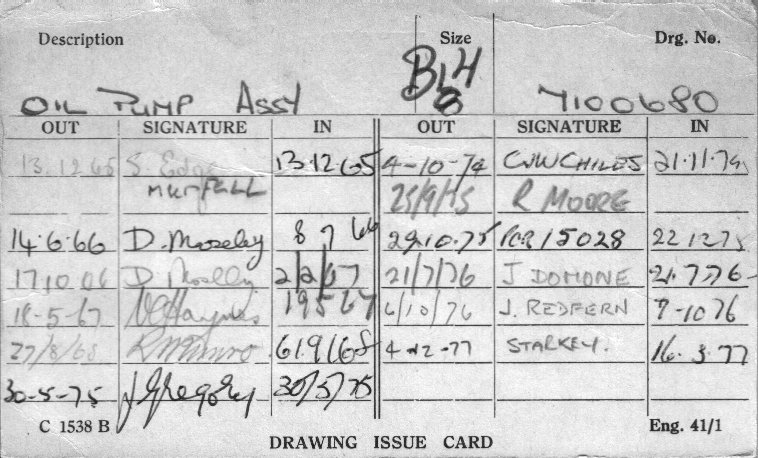 Description Size Drg. No.
OIL PUMP ASSY 7100680
OUT SIGNATURE IN OUT SIGNATURE IN
13.12.65 S. Edge 13.12.65 4-10-74 CWW CHILES 21.11.74
25/9/75 R MOORE
14.6.66 D. Moseley 8 7 66 29.10.75 PCR 15028 22 12 75
17 10 66 D Moseley 2/2/67 21/7/76 J DOMONE 21.7.76
18-5-67 19 5 67 6/10/76 J. REDFERN 7-10 76
27/8/68 4-12-77 STARKEY. 16.3.77
30-5-75 J Gregory 30/5/75
C 1538 B Eng. 41/1
DRAWING ISSUE CARD